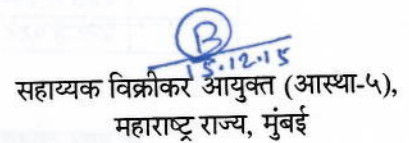 B
15.12.15
सहाय्यक विक्रीकर आयुक्त (आस्था-५),
महाराष्ट्र राज्य, मुंबई